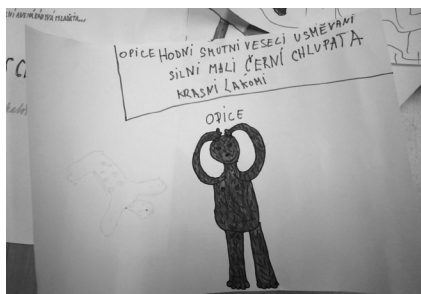 OPICE HODNÍ SMUTNI VESELI USMĚVANI
SILNI MALI ČERNÍ CHLUPATA
KRASNI LAKOMI
OPICE